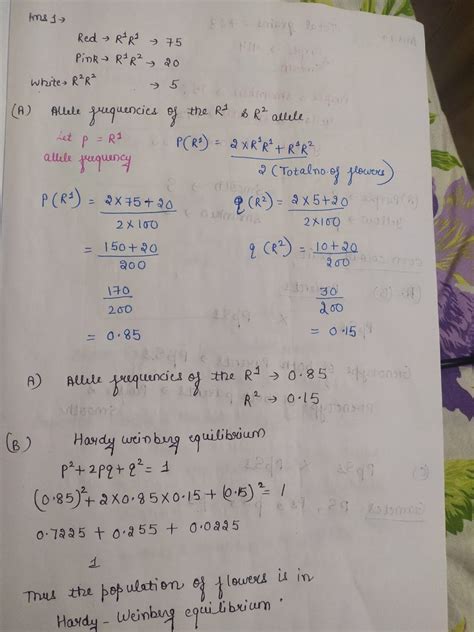 Ans 1 →
Red → R¹R¹ → 75
Pink → R¹R² → 20
White → R²R² → 5
(A) Allele frequencies of the R¹ & R² allele
Let p = R¹
allele frequency
P(R¹) = 2×R¹R¹ + R¹R² / 2 (Total no of flowers)
P(R¹) = 2×75+20 / 2×100
= 150+20 / 200
170 / 200
= 0.85
q (R²) = 2×5+20 / 2×100
q (R²) = 10+20 / 200
30 / 200
= 0.15
A) Allele frequencies of the R¹ → 0.85
R² → 0.15
(B) Hardy weinberg equilibrium
P²+2pq+q² = 1
(0.85)²+2×0.85×0.15+(0.15)² = 1
0.7225 + 0.255 + 0.0225
1
Thus the population of flowers is in
Hardy - Weinberg equilibrium.